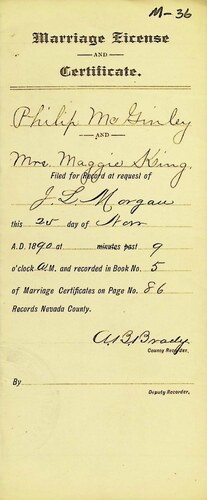 M-36
Marriage License
AND
Certificate.
Philip McGinley
AND
Mrs. Maggie King.
Filed for Record at request of
J. L. Morgan
this 25 day of Nov
A.D. 1890 at minutes past 9
o'clock A.M. and recorded in Book No. 5
of Marriage Certificates on Page No. 86
Records Nevada County.
A.B. Brady
County Recorder.
By
Deputy Recorder.